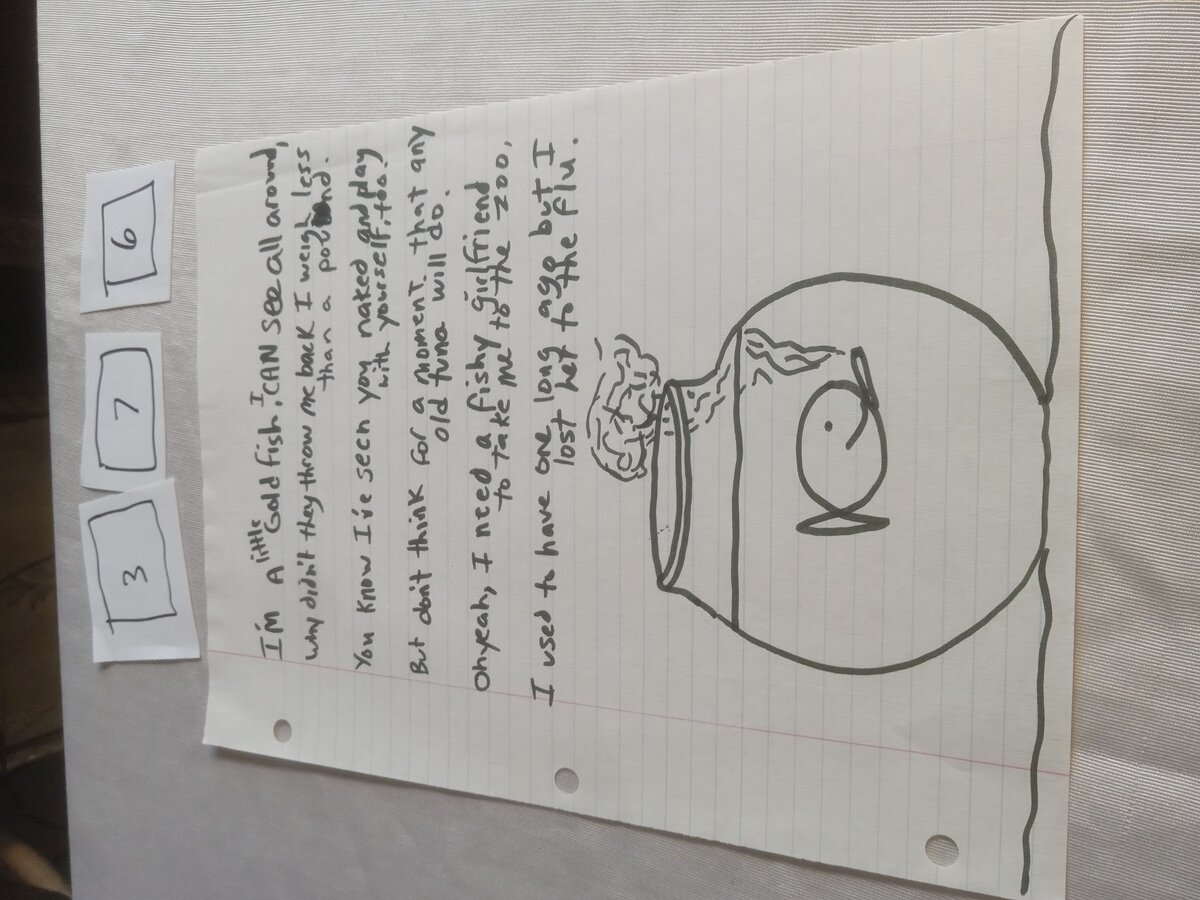 3 7 6
I'm A little Gold fish, I CAN see all around,
Why didn't they throw me back I weigh less
than a pound.
You know I've seen you naked and play
with yourself, too!
But don't think for a moment that any
old tuna will do.
Oh yeah, I need a fishy girlfriend
to take me to the zoo,
I used to have one long ago but I
lost her to the flu.